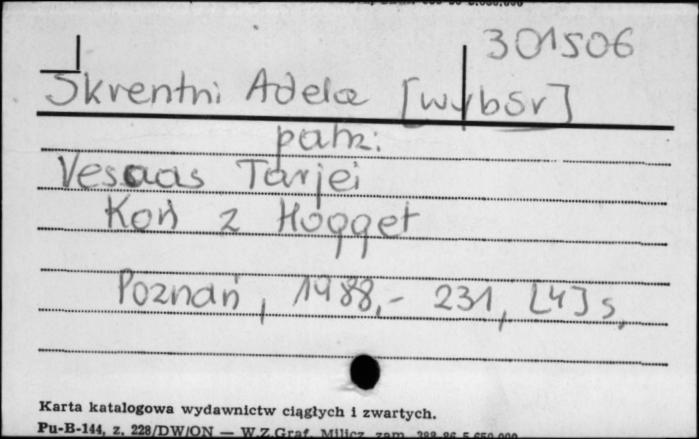 301506
Skrentni Adela [wybór]
patrz:
Vesaas Tarjei
Koń z Hogget
Poznań, 1988,- 231, [4] s.
Karta katalogowa wydawnictw ciągłych i zwartych.
Pu-B-144, z. 228/DW/ON — W.Z.Graf. Milicz, zam.